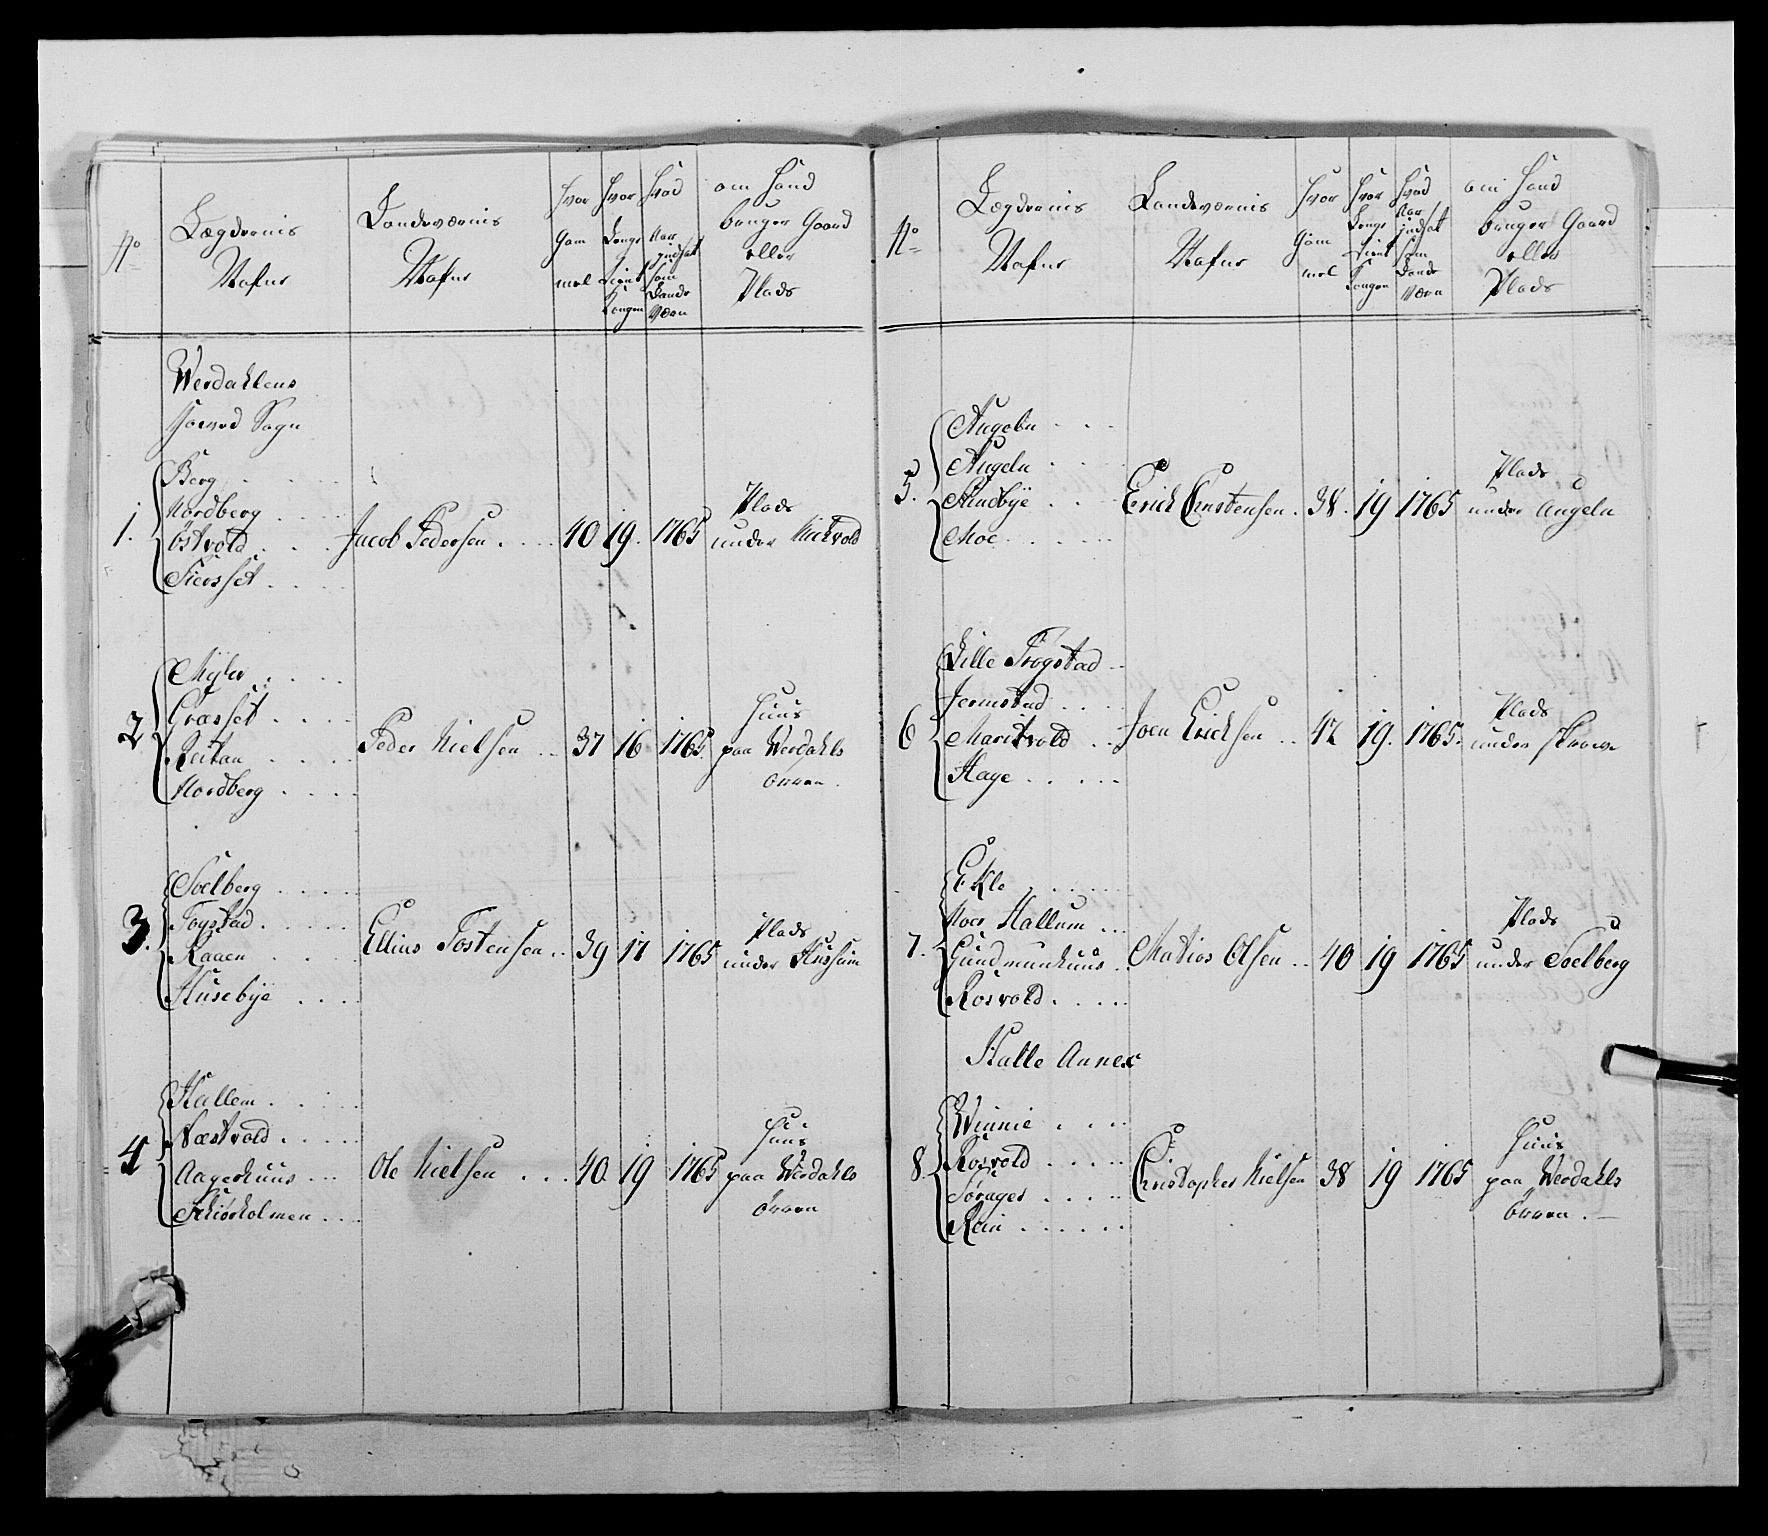 No
Lægdernis
Nafne
Landeværnis
Nafne
Hvor
Gam
mel
Hvor
Længe
Tient
Kongen
Hvad
Aar
jndsat
som
Lande
Værn
om Hand
bruger Gaard
eller
Plads
Werdahlens
Hoeved Sogn
1.
Berg
Nordberg
Østvold
Fiersset
Jacob Pedersen 40 19. 1765
Plads
under
2
Mÿler
Græsset
Reitan
Nordberg
Peder Nielsen 37 16 1765.
Huus
paa Werdahls
Ørren.
3.
Soelberg
Togstad
Raaen
Husebÿe
Ellius Tostensen 39 17 1765
Plads
under Hussum
4
Hallem
Næstvold
Aagerhuus
Skiørholmen
Ole Nielsen 40 19 1765
Huus
paa Werdahls
Ørren
No
Lægdernis
Nafne
Landeværnis
Nafne
Hvor
Gam
mel
Hvor
Længe
Tient
Kongen
Hvad
Aar
jndsat
som
Lande
Værn
om Hand
bruger Gaard
eller
Plads
5.
Augeln
Mindbÿe
Moe
Erich Ernstensen. 38. 19 1765
Plads
under Augeln
6
Lille Trogstad
Jermstad
Maritvold
Hage
Joen Erichsen 42 19. 1765.
Plads
under
7.
Ekle
Noer Hallum
Gudmunhuus
Rosvold
Matios Olsen 40 19 1765
Plads
under Soelberg
Halle Annex
8.
Winnie
Rosvold
Sørager
Rein
Christopher Nielsen 38 19 1765
Huus
paa Werdahls
Ørren.